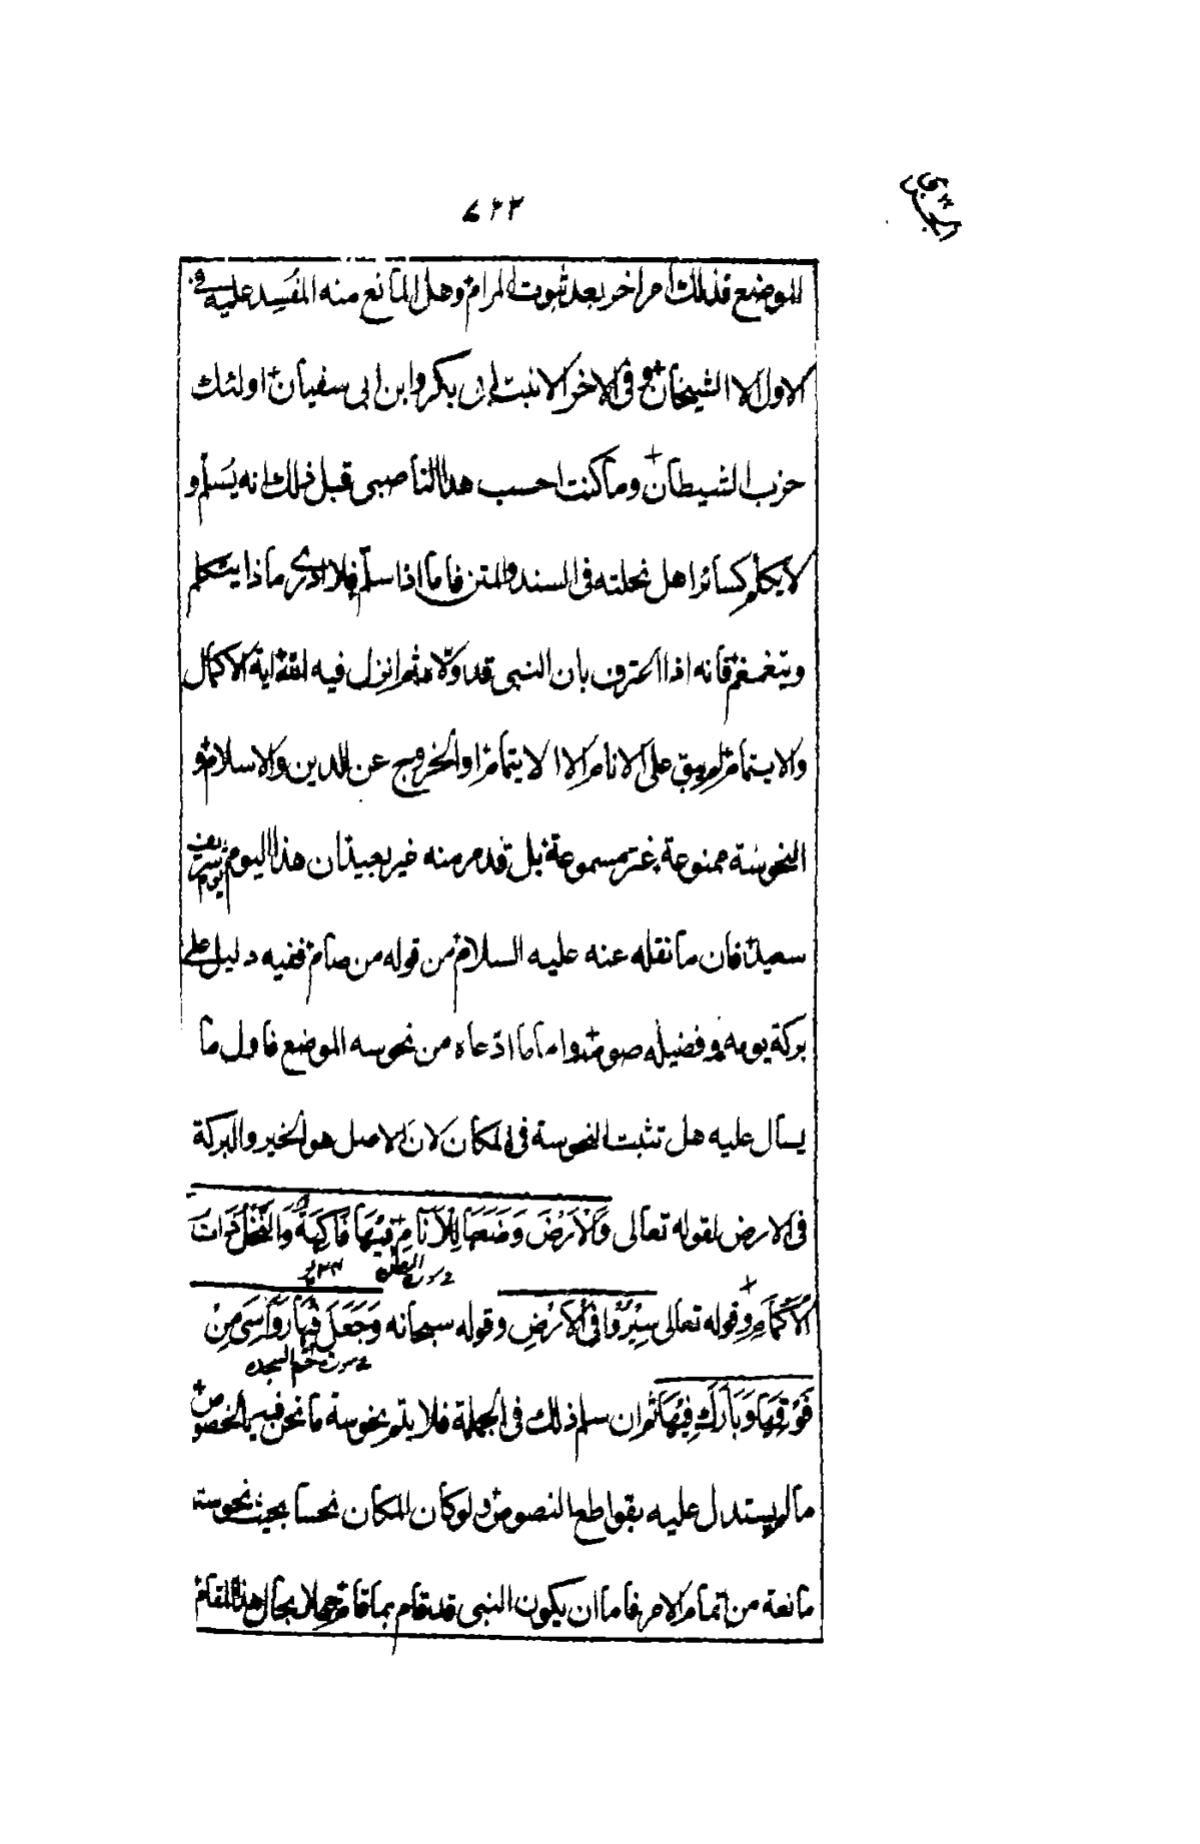 ٧٢٢
الجزء ٣
الموضع فذلك امر اخر بعد ثبوت المرام وهل المانع منه المفسد عليه في
الاول الا الشيخان وفي الاخر الا نبت ابي بكر وابن ابي سفيان اولئك
حزب الشيطان وما كنت احسب هذا الناصبي قبل ذلك انه يُسلّم و
لا يكلم كسائر اهل نحلته في السند والمتن فاما اذا سلّم فلا ادري ماذا يتكلم
ويتغمغم فانه اذا اعترف بان النبي قد ولّاه ثم انزل فيه الله اية الاكمال
والاستتمام لم يبق على الانام الا الايتمام او الخروج عن الدين والاسلام و
النحوسة ممنوعة غير مسموعة بل قد مر منه غير بعيد ان هذا اليوم يوم شريف
سعيد فان ما نقله عنه عليه السلام من قوله من صام ففيه دليل على
بركة يومه وفضيلة صومه واما ما ادّعاه من نحوسه الموضع فاول ما
يسأل عليه هل تثبت النحوسة في المكان لان الاصل هو الخير والبركة
في الارض لقوله تعالى وَالْاَرْضَ وَضَعَهَا لِلْاَنَامِ فِيْهَا فَاكِهَةٌ وَالنَّخْلُ ذَاتُ
الْاَكْمَامِ وقوله تعالى سِيْرُوْا فِي الْاَرْضِ وقوله سبحانه وَجَعَلَ فِيْهَا رَوَاسِيَ مِنْ
سورة حم السجده
فَوْقِهَا وَبَارَكَ فِيْهَا ثم ان سلم ذلك في الجملة فلا يتم نحوسة ما نحن فيه بالخصوص
ما لم يستدل عليه بقواطع النصوص ولو كان المكان نحسا بحيث نحوسته
مانعة من اتمام الامر فاما ان يكون النبي قد قام بما قام جهلا بحال هذا المقام